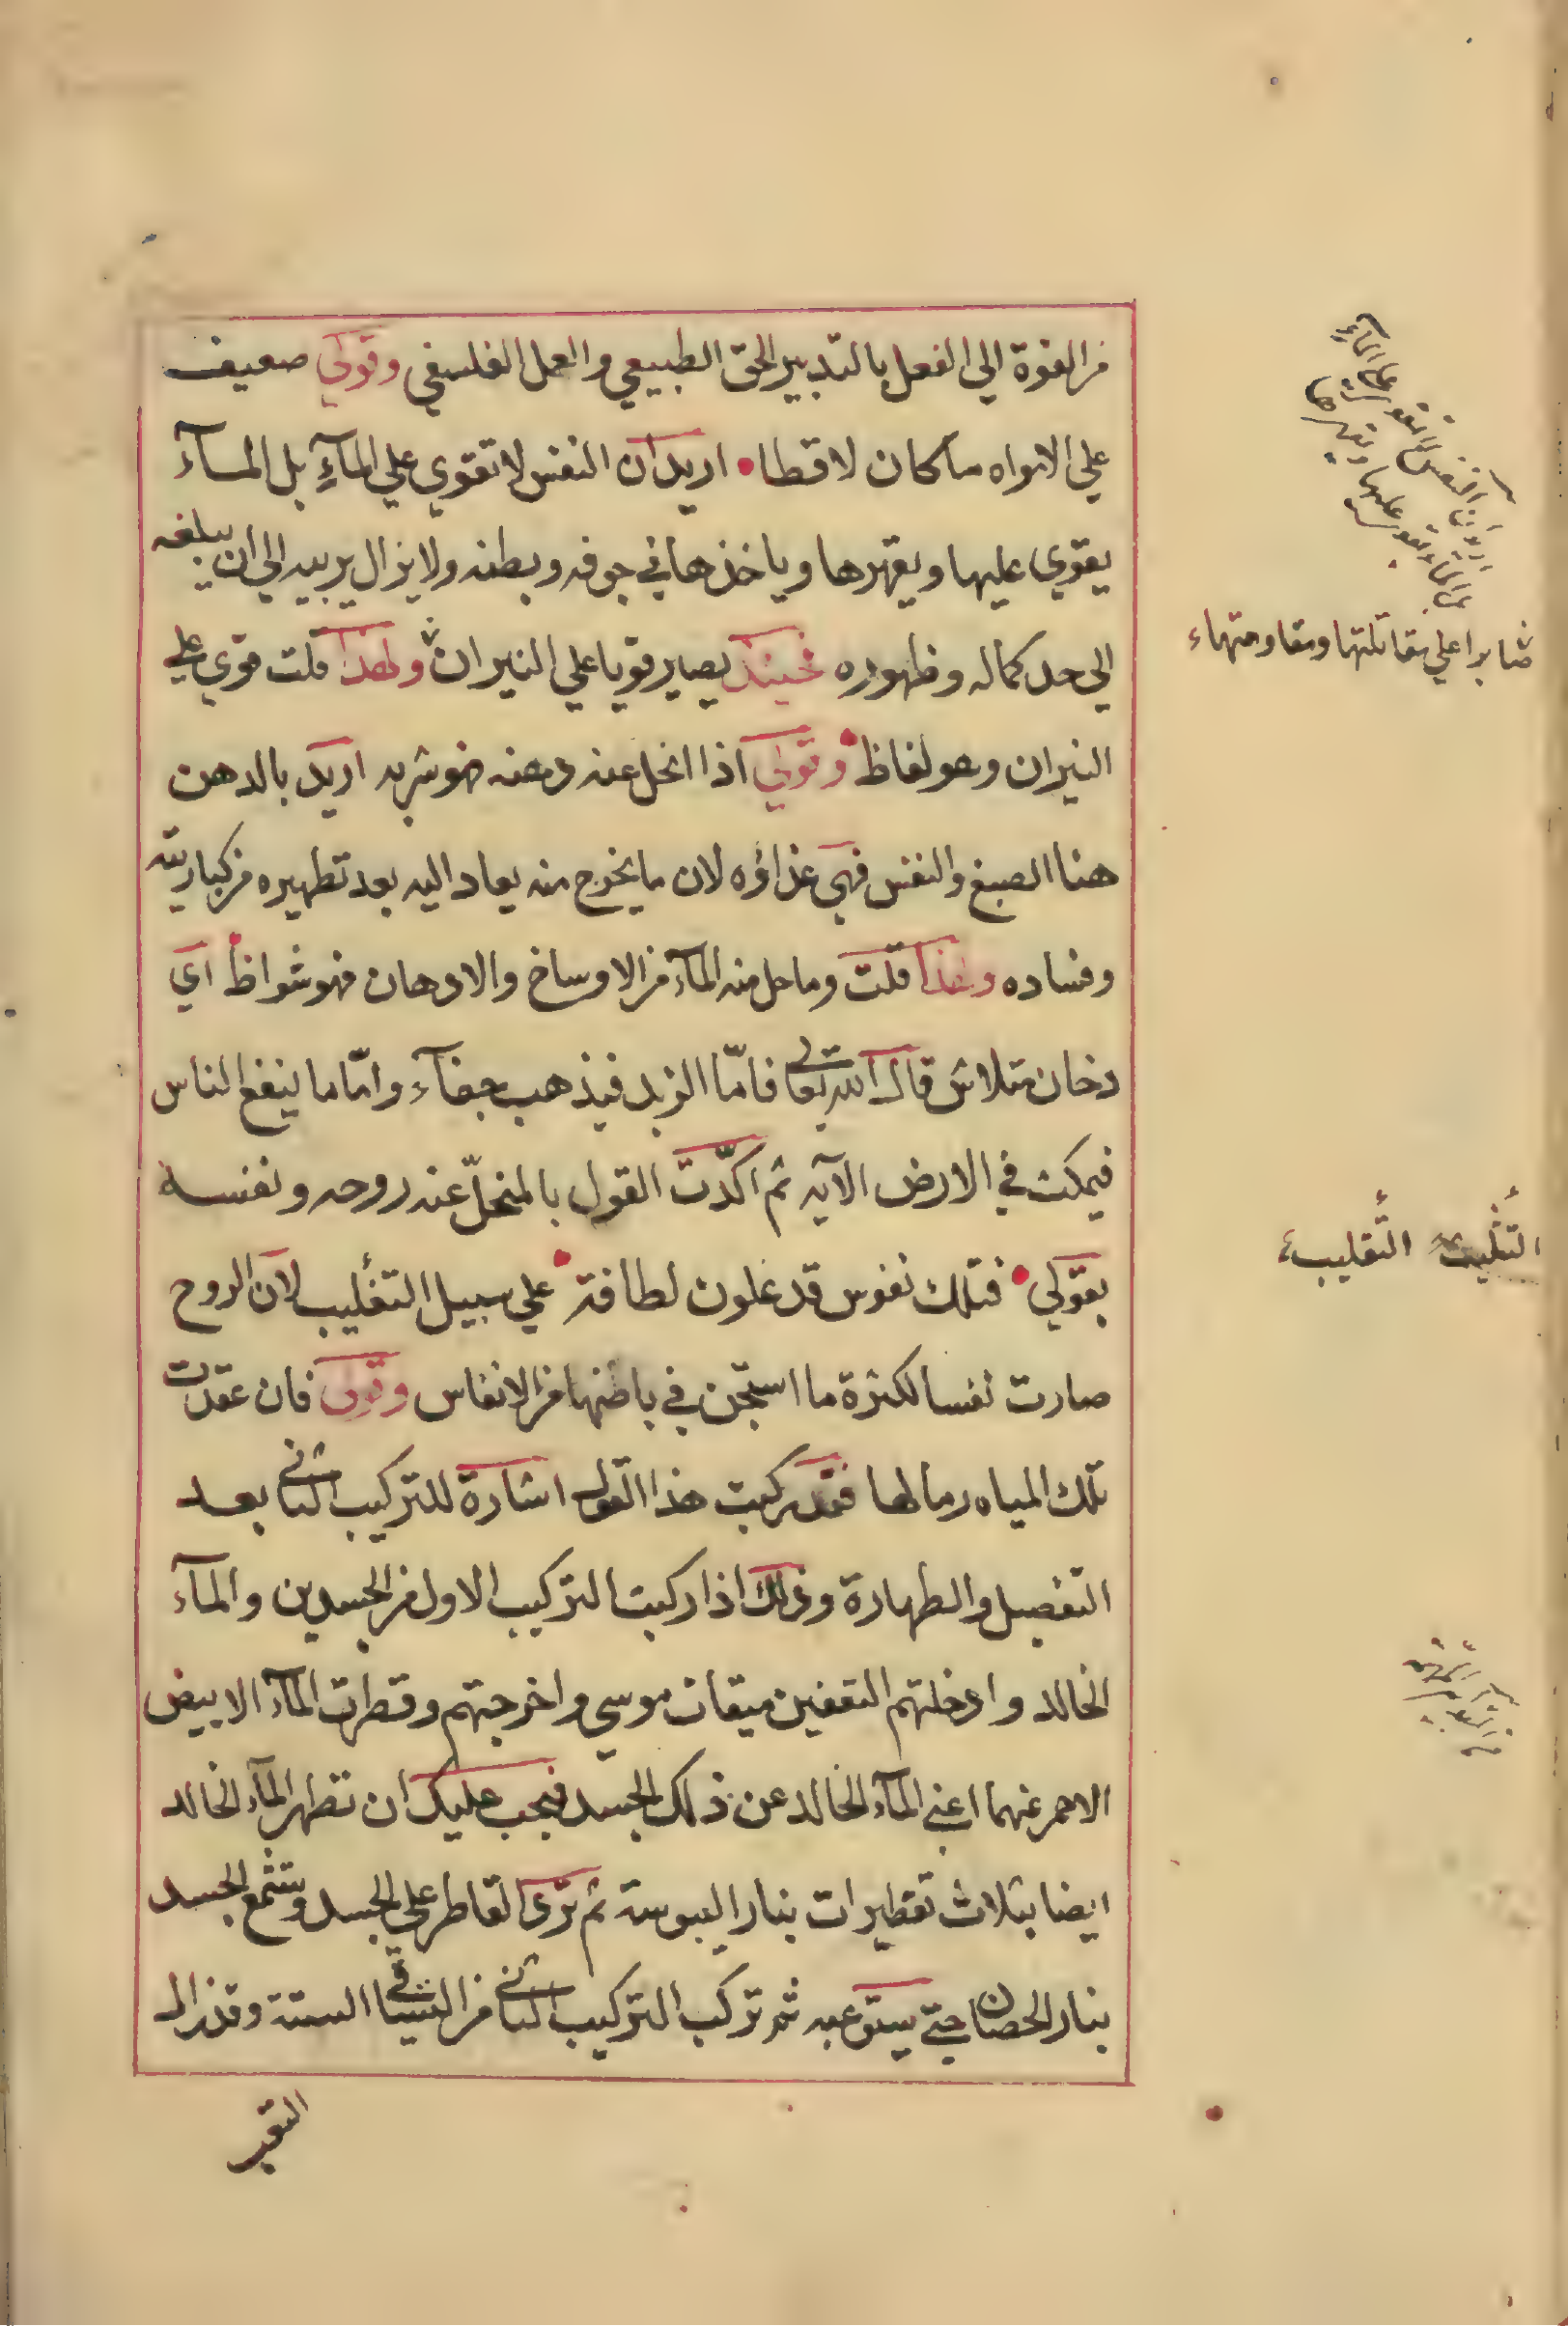 من القوة الي الفعل بالتدبير الحق الطبيعي والعمل الفلسفي وقولي ضعيف
علي الامواه ما كان لاقطا اريد ان النفس لا تقوي علي المآء بل المآء
يقوي عليها ويقهرها وياخذها في جوفه وبطنه ولا يزال يربيه الي ان يبلغه
الي حد كماله وظهوره فحينئذ يصير قويا علي النيران ولهذا قلت قوي علي
النيران وهو لفاظ وقولي اذا انحل عنه دهنه فهو شربه اريد بالدهن
هنا الصبغ والنفس فهي غذاؤه لان ما يخرج منه يعاد اليه بعد تطهيره من كباريته
وفساده ولهذا قلت وما حل منه المآء من الاوساخ والادهان فهو شواظ اي
دخان متلاش قال الله تعالي فامّا الزبد فيذهب جفآء وامّا ما ينفع الناس
فيمكث في الارض الآيه ثم اكدّت القول بالمنحلّ عنه روحه ونفسه
بقولي فتلك نفوس قد علون لطافة علي سبيل التغليب لان الروح
صارت نفسا لكثرة ما استجن في باطنها من الانفاس وقولي فان عقدت
تلك المياه رمالها فقد ركبت هذا القول اشارة للتركيب الثاني بعد
التفصيل والطهارة وذلك اذا ركبت التركيب الاول من الجسدين والمآء
الخالد وادخلتهم التعفين ميقات موسي واخرجتهم وقطرت المآء الابيض
الاحمر عنهما اعني المآء الخالد عن ذلك الجسد فيجب عليك ان تطهر المآء الخالد
ايضا بثلاث تقطيرات بنار اليبوسة ثم تري القاطر علي الجسد وتشمع الجسد
بنار الحصان حتي يستوعبه ثم تركب التركيب الثاني من التساقي الستة وقدر الـ
التقبر
علي مقاتلتها ومقاومتها
التثليث التقليب